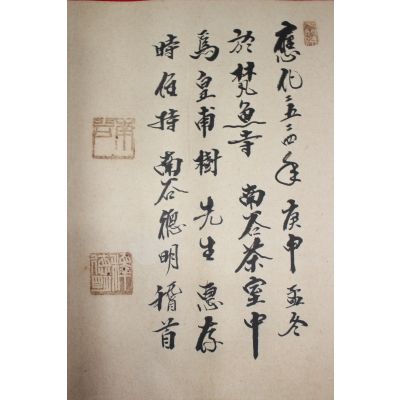 應化二五二四年 庚申 孟冬
於梵魚寺 南谷茶室中
爲皇甫樹 先生 惠存
時住持 南谷德明 稽首